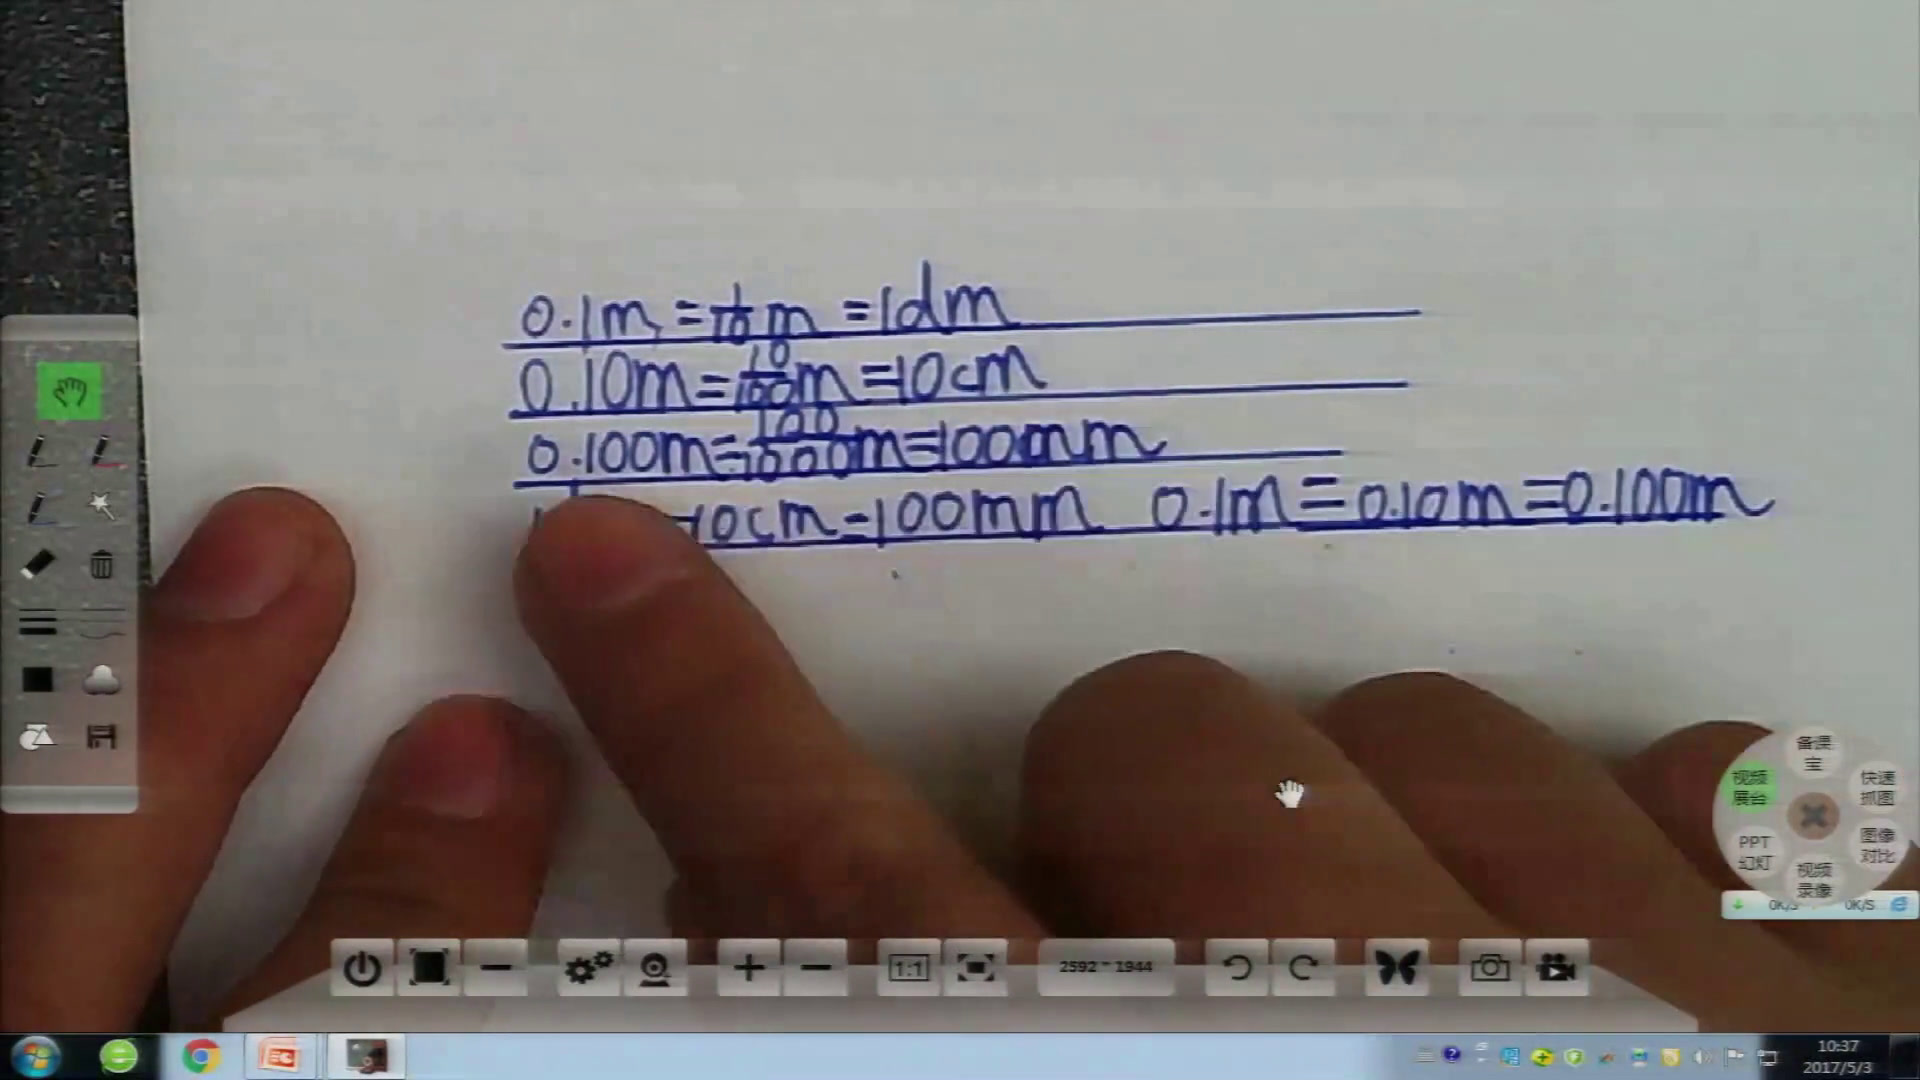 0.1m=1/10m=1dm
0.10m=10/100m=10cm
0.100m=100/1000m=100mm
=10cm=100mm 0.1m=0.10m=0.100m
备课宝
视频展台
快速抓图
PPT幻灯
图像对比
视频录像
0K/S 0K/S
1:1
2592 * 1944
10:37
2017/5/3